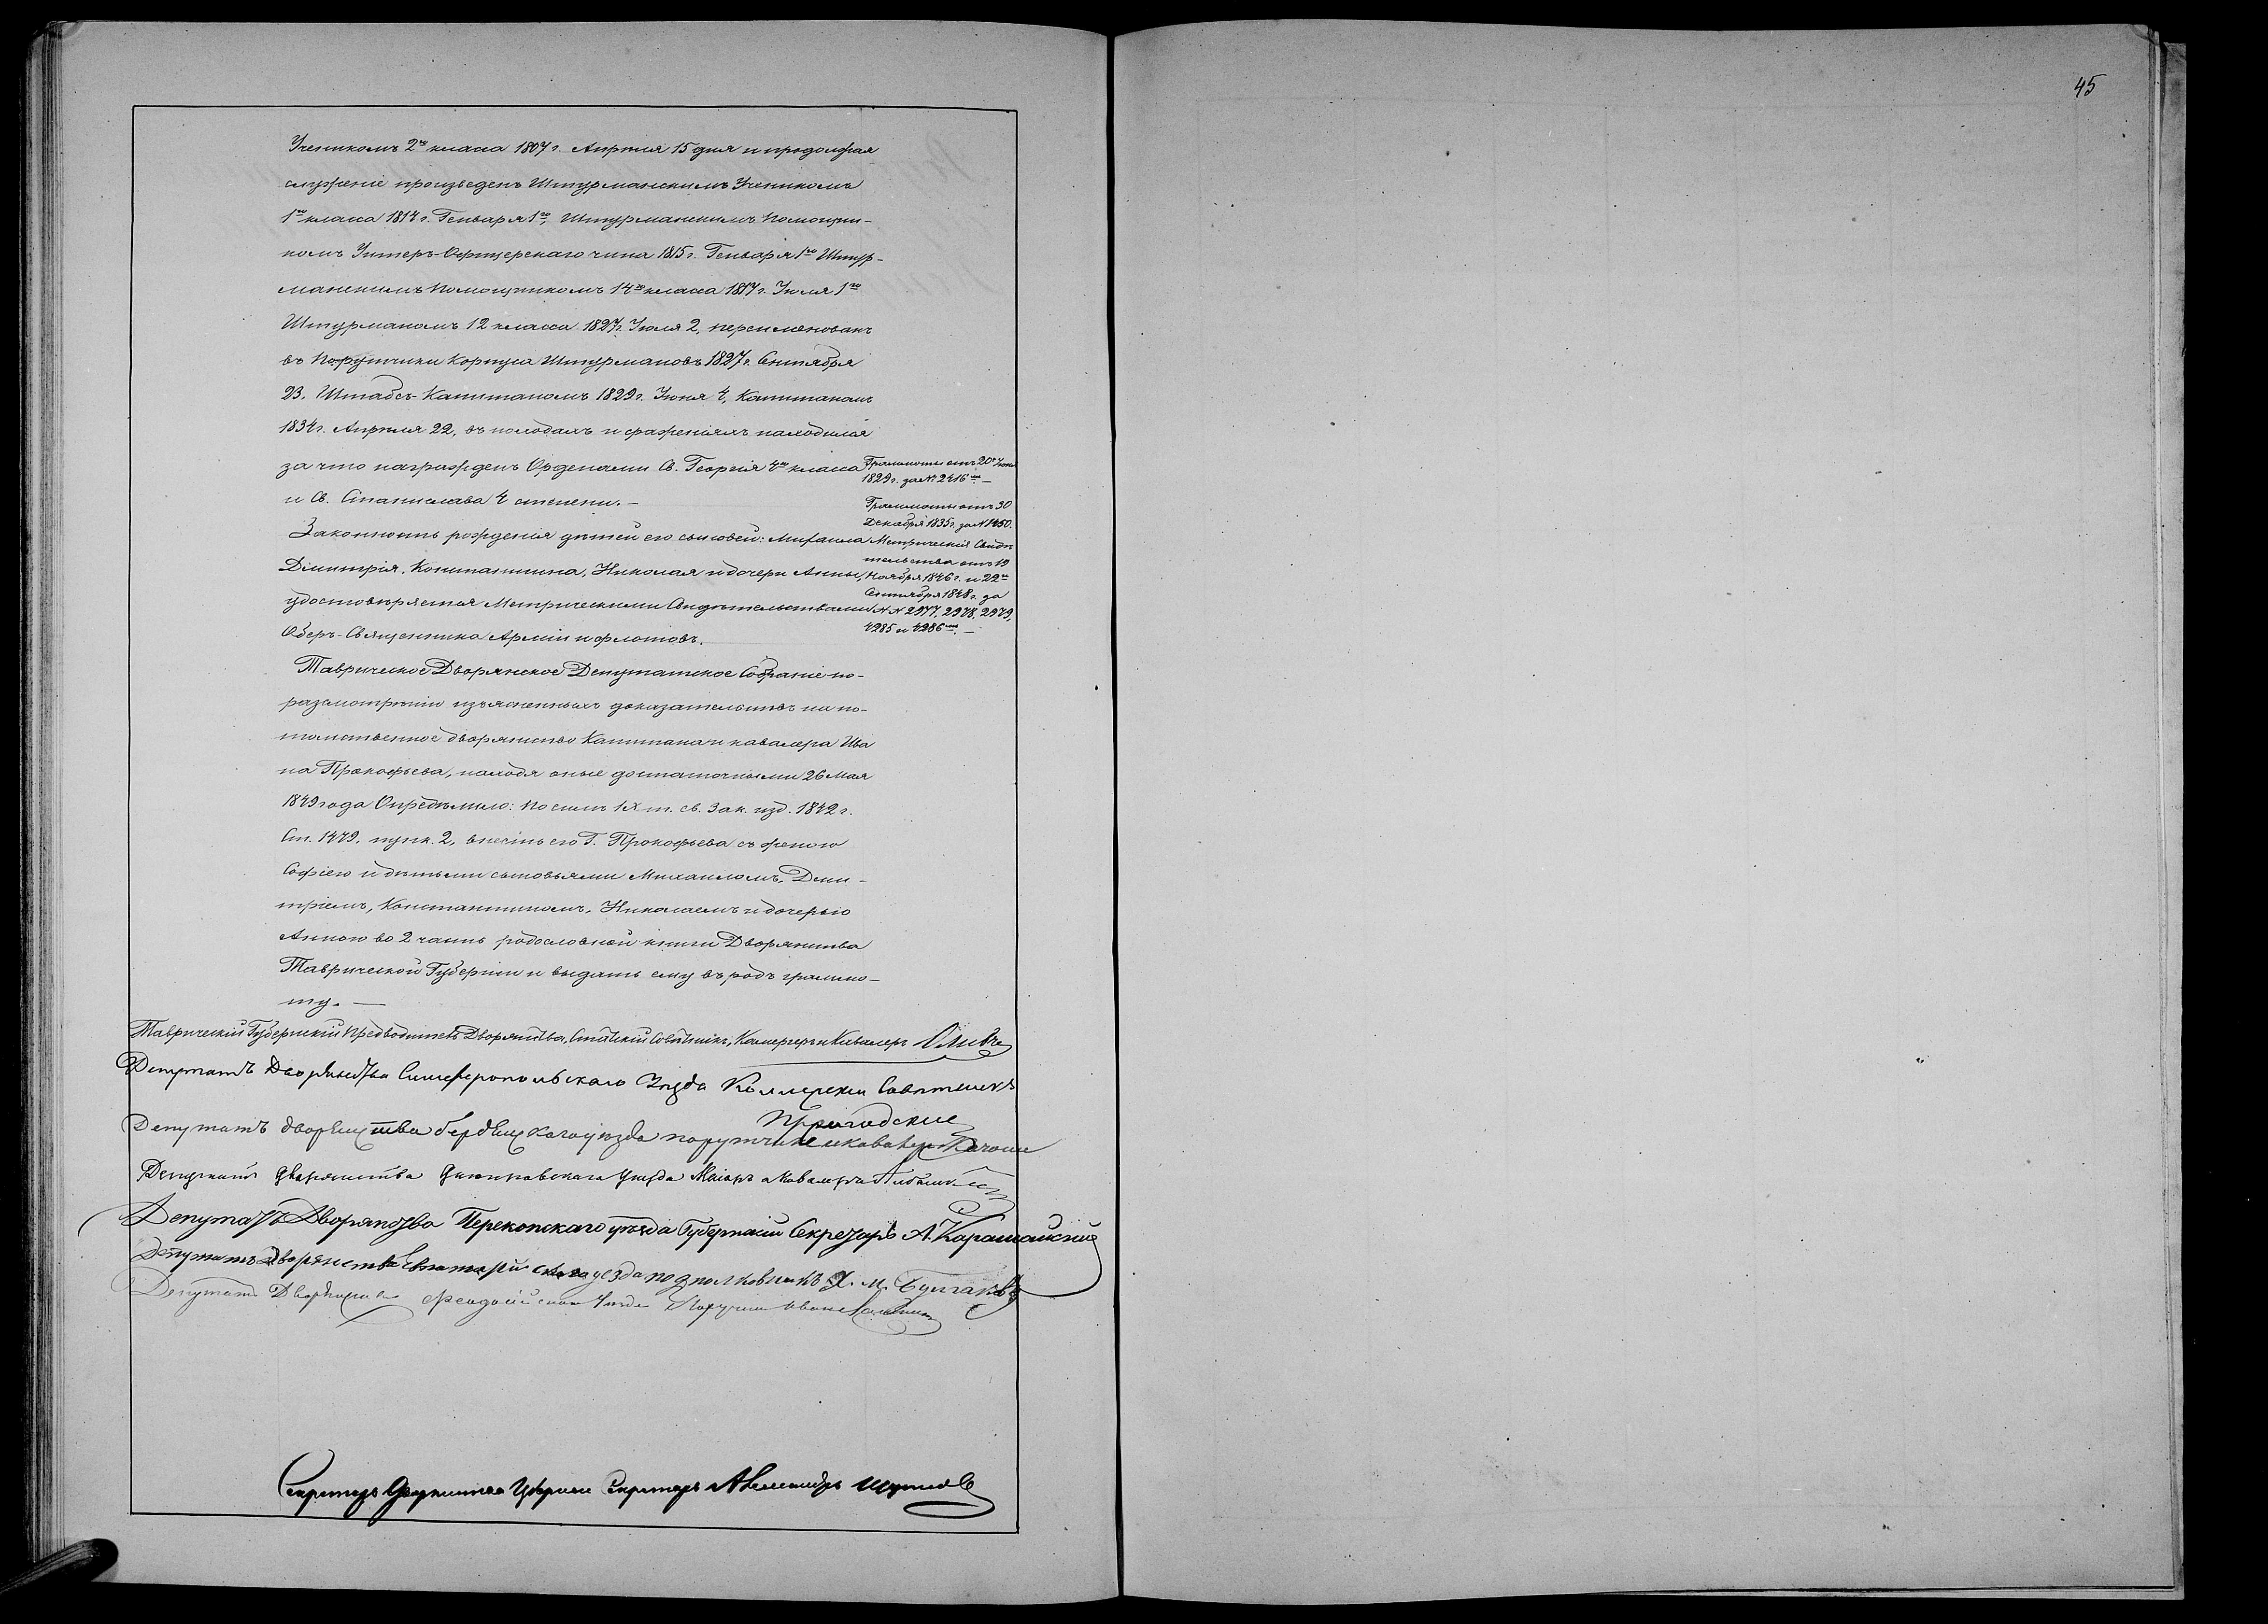 45
Ученикомъ 2го класса 1807 г. Апрѣля 15 дня и продолжая
служеніе произведенъ Штурманскимъ Ученикомъ
1го класса 1814 г. Генваря 1го, Штурманскимъ помощни-
комъ Унтеръ-Офицерскаго чина 1815 г. Генваря 1го Штур-
манскимъ помощникомъ 14го класса 1817 г. Іюля 1го
Штурманомъ 12 класса 1827 г. Іюля 2, переименованъ
въ Порутчики Корпуса Штурмановъ 1827 г. Сентября
23. Штабсъ-Капитаномъ 1829 г. Іюня 4, Капитаномъ
1834 г. Апрѣля 22, въ походахъ и сраженіяхъ находился
за что награжденъ Орденами Св. Георгія 4го класса
и Св. Станислава 4 степени. —
Законность рожденія дѣтей его сыновей: Михаила
Димитрія, Константина, Николая и дочери Анны,
удостовѣряется Метрическими Свидѣтельствами
Оберъ-Священника Арміи и флотовъ.
Грамоты отъ 20 Іюня
1829 г. за № 2416мъ. —
Грамоты отъ 30
Декабря 1835 г. за № 1450.
Метрическія Свидѣ
тельства отъ 19
Ноября 1846 г. и 22го
Сентября 1848 г. за
№№ 2977, 2978, 2979,
4285 и 4286мъ. —
Таврическое Дворянское Депутатское Собраніе по-
разсмотрѣніи изъясненныхъ доказательствъ на по-
томственное дворянство Капитана и кавалера Ива
на Прокофьева, находя оные достаточными 26 Мая
1849 года Опредѣлило: по силѣ IX т. св. Зак. изд. 1842 г.
Ст. 1479, пунк. 2, внесть его Г. Прокофьева съ женою
Софіею и дѣтьми сыновьями Михаиломъ, Дми-
тріемъ, Константиномъ, Николаемъ и дочерью
Анною во 2 часть родословной книги Дворянства
Таврической Губерніи и выдать ему въ родъ грамо-
ту. —
Таврическій Губернскій Предводитель Дворянства, Статскій Совѣтникъ, Камергеръ и Кавалеръ Оливъ
Депутатъ Дворянства Симферопольскаго Уѣзда Коллежскій Совѣтникъ
Депутатъ дворянства бердянскаго уѣзда порутчикъ и кавалеръ
Депутатъ дворянства Днепровскаго уѣзда Маіоръ и Кавалеръ
Депутатъ Дворянства Перекопскаго уѣзда Губернскій Секретарь А. Карашайскій
Депутатъ Дворянства Евпаторійскаго уезда подполковникъ Я. М. Булгаковъ
Депутатъ Дворянства Феодосійскаго Уѣзда Поручикъ Иванъ
Секретарь Дворянства Губернскій Секретарь Александръ